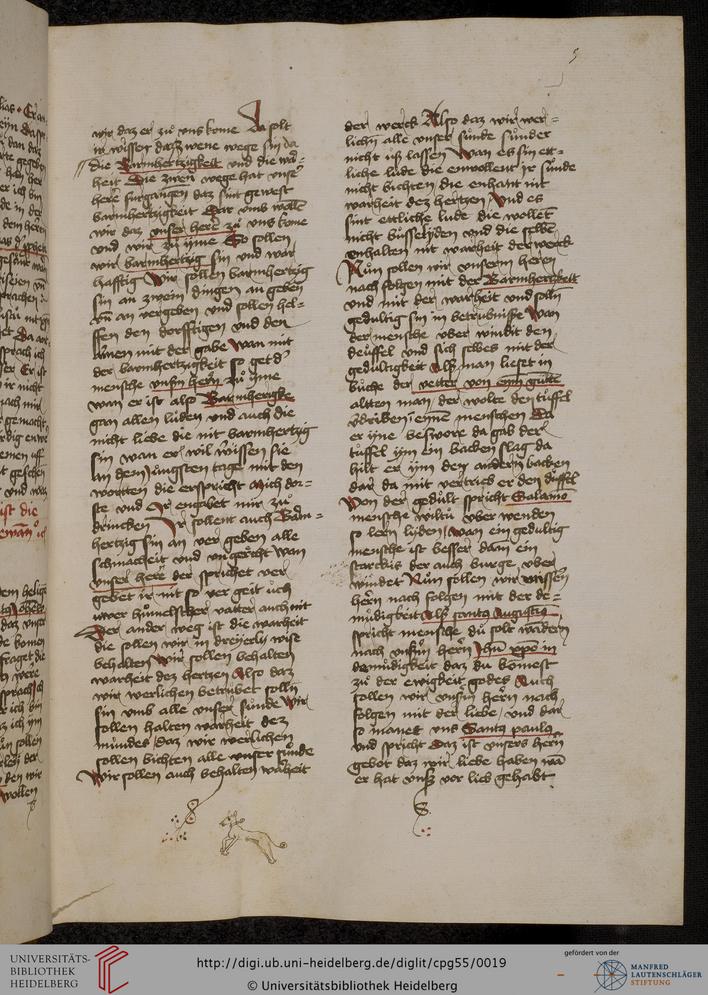 5
wir daz er zu͛ vns kome Da solt
ir wissen daz zwene wege sin da
die Barmhertzigkeit vnd die war-
heit Die zwen wege hat vnser
here furgangen daz sint gewest
barmhertzigkeit Dar vmb wollē
wir daz vnser here zu͛ vns kome
vnd wir zu͛ yme So sollen
wir barmhertzig sin vnd war-
hafftig Wir sollen barmhertzig
sin an zwein dingen an geben
vn̄ an vergeben vnd sollen hel-
ffen den dorfftigen vnd den
armen mit der gabe wan mit
der barmhertzigkeit so get d'
mensche vnsm̄ hern̄ zu͛ yme
wan er ist also Barmhertzig
gan allen luden vnd auch die
nicht liebe die nit barmhertzig
sin wan er wil wissen sie
an dem jungsten tage mit den
wortten die er spricht Mich dor-
ste vnd Ir engabet mir zu͛
drincken Ir sollent auch Barm-
hertzig sin an ver geben alle
schmacheit vnd vngericht wan
vnser here der sprichet ver
gebet ir nit so ver geit uch
uwer hu͛melscher vatter auch nit
Der ander weg ist die warheit
die sollen wir in dreyerly wise
behalten Wir sollen behalten
warheit dez hertzen Also daz
wir werlichen betrubet solln̄
sin vmb alle vnser sunde Wir
sollen halten warheit dez
mundes daz wir werlichen
sollen bichten alle vnser su͛nde
Wir sollen auch behalten warheit
der werck Also daz wir wer-
lichn̄ alle vnser su͛nde sunder
nicht uß lassen Wan es sin ett-
liche lude die enwollent ir sunde
nicht bichten die enhant nit
warheit dez hertzen Vnd es
sint ettliche lude die wollēt
nicht busse lyden vnd die selbē
enhalten nit warheit der werck
Nu͛n sollen wir vnserm heren
nach folgen mit der Barmhertzikeit
vnd mit der warheit vnd solln̄
gedultig sin in betrubnisse Wan
der mensche vber windt den
deu͛ffel vnd sich selbes mit der
gedultigkeit Alß man lieset in
bu͛che der vetter von eym gu͛ttē
altten man der wolte den tuffel
v'driben eme menschen Da
er yme beswore da gab der
tuffel ym ein backen slag da
hilt er ym den andern backen
dar da mit vertreib er den du͛ffel
Von der gedult spricht Salamo
mensche wiltu͛ vber wenden
so lern lyden wan ein gedultig
mensche ist besser dann ein
starckes der auch burge vber
windet Nu͛n sollen wir vnssern
hern̄ nach folgen mit der de-
mu͛digkeit Alß santg Augustg
spricht mensche du͛ solt wandern
nach vnsm̄ hern̄ Jhū xp̄o in
demu͛digkeit daz du ko͛mest
zu͛ der ewigkeit godes Auch
sollen wir vnsm̄ hern̄ nach
folgen mit der liebe vnd dar
so manet vns Santg paulg
vnd spricht Daz ist vnsers hern̄
gebot daz wir liebe haben wā
er hat vnß vor lieb gehabt
UNIVERSITÄTS-
BIBLIOTHEK
HEIDELBERG
http://digi.ub.uni-heidelberg.de/diglit/cpg55/0019
© Universitätsbibliothek Heidelberg
gefördert von der
MANFRED
LAUTENSCHLÄGER
STIFTUNG